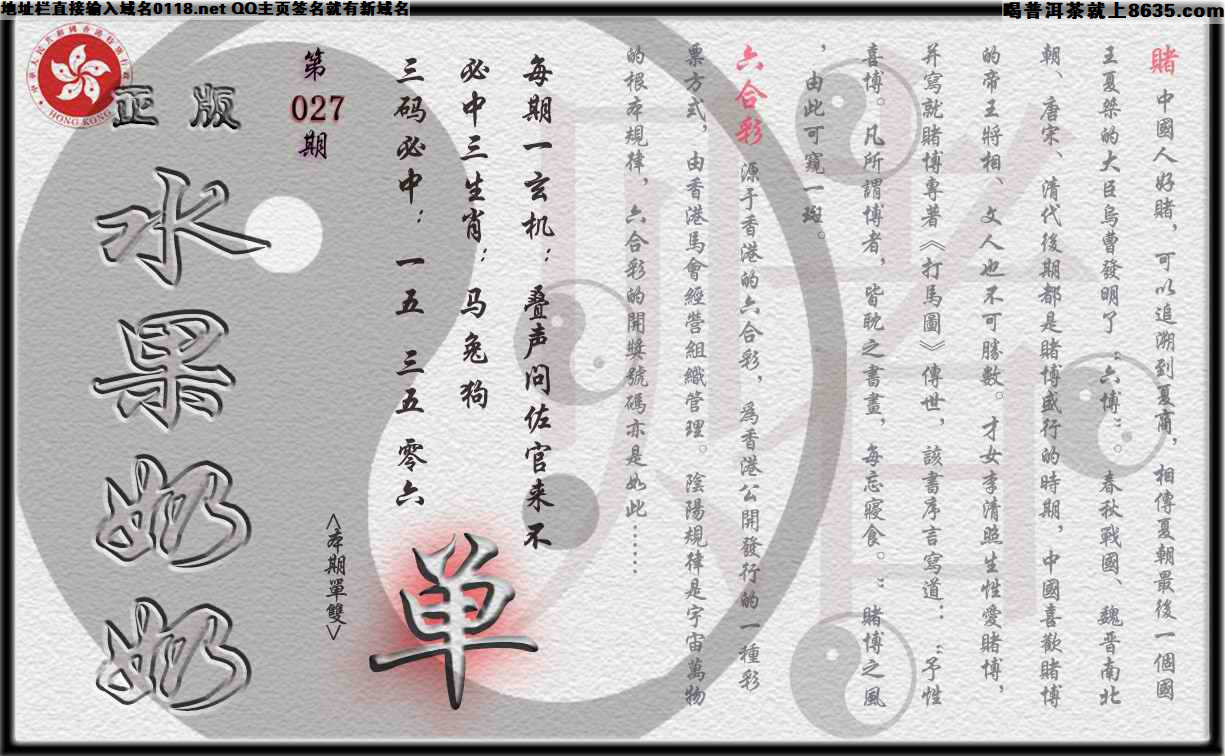 地址栏直接输入域名0118.net QQ主页签名就有新域名
喝普洱茶就上8635.com
賭 中國人好賭，可以追溯到夏商，相傳夏朝最後一個國
王夏桀的大臣烏曹發明了“六博”。春秋戰國、魏晋南北
朝、唐宋、清代後期都是賭博盛行的時期，中國喜歡賭博
的帝王將相、文人也不可勝數。才女李清照生性愛賭博，
并寫就賭博專著《打馬圖》傳世，該書序言寫道：：“予性
喜博。凡所謂博者，皆耽之書畫，每忘寢食。”賭博之風
，由此可窺一斑。
六合彩 源于香港的六合彩，為香港公開發行的一種彩
票方式，由香港馬會經營組織管理。陰陽規律是宇宙萬物
的根本規律，六合彩的開獎號碼亦是如此……
每期一玄机：叠声问佐官来不
必中三生肖：马兔狗
三码必中：一五 三五 零六
单
<本期單雙>
第
027
期
正版
水果奶奶
HONG KONG